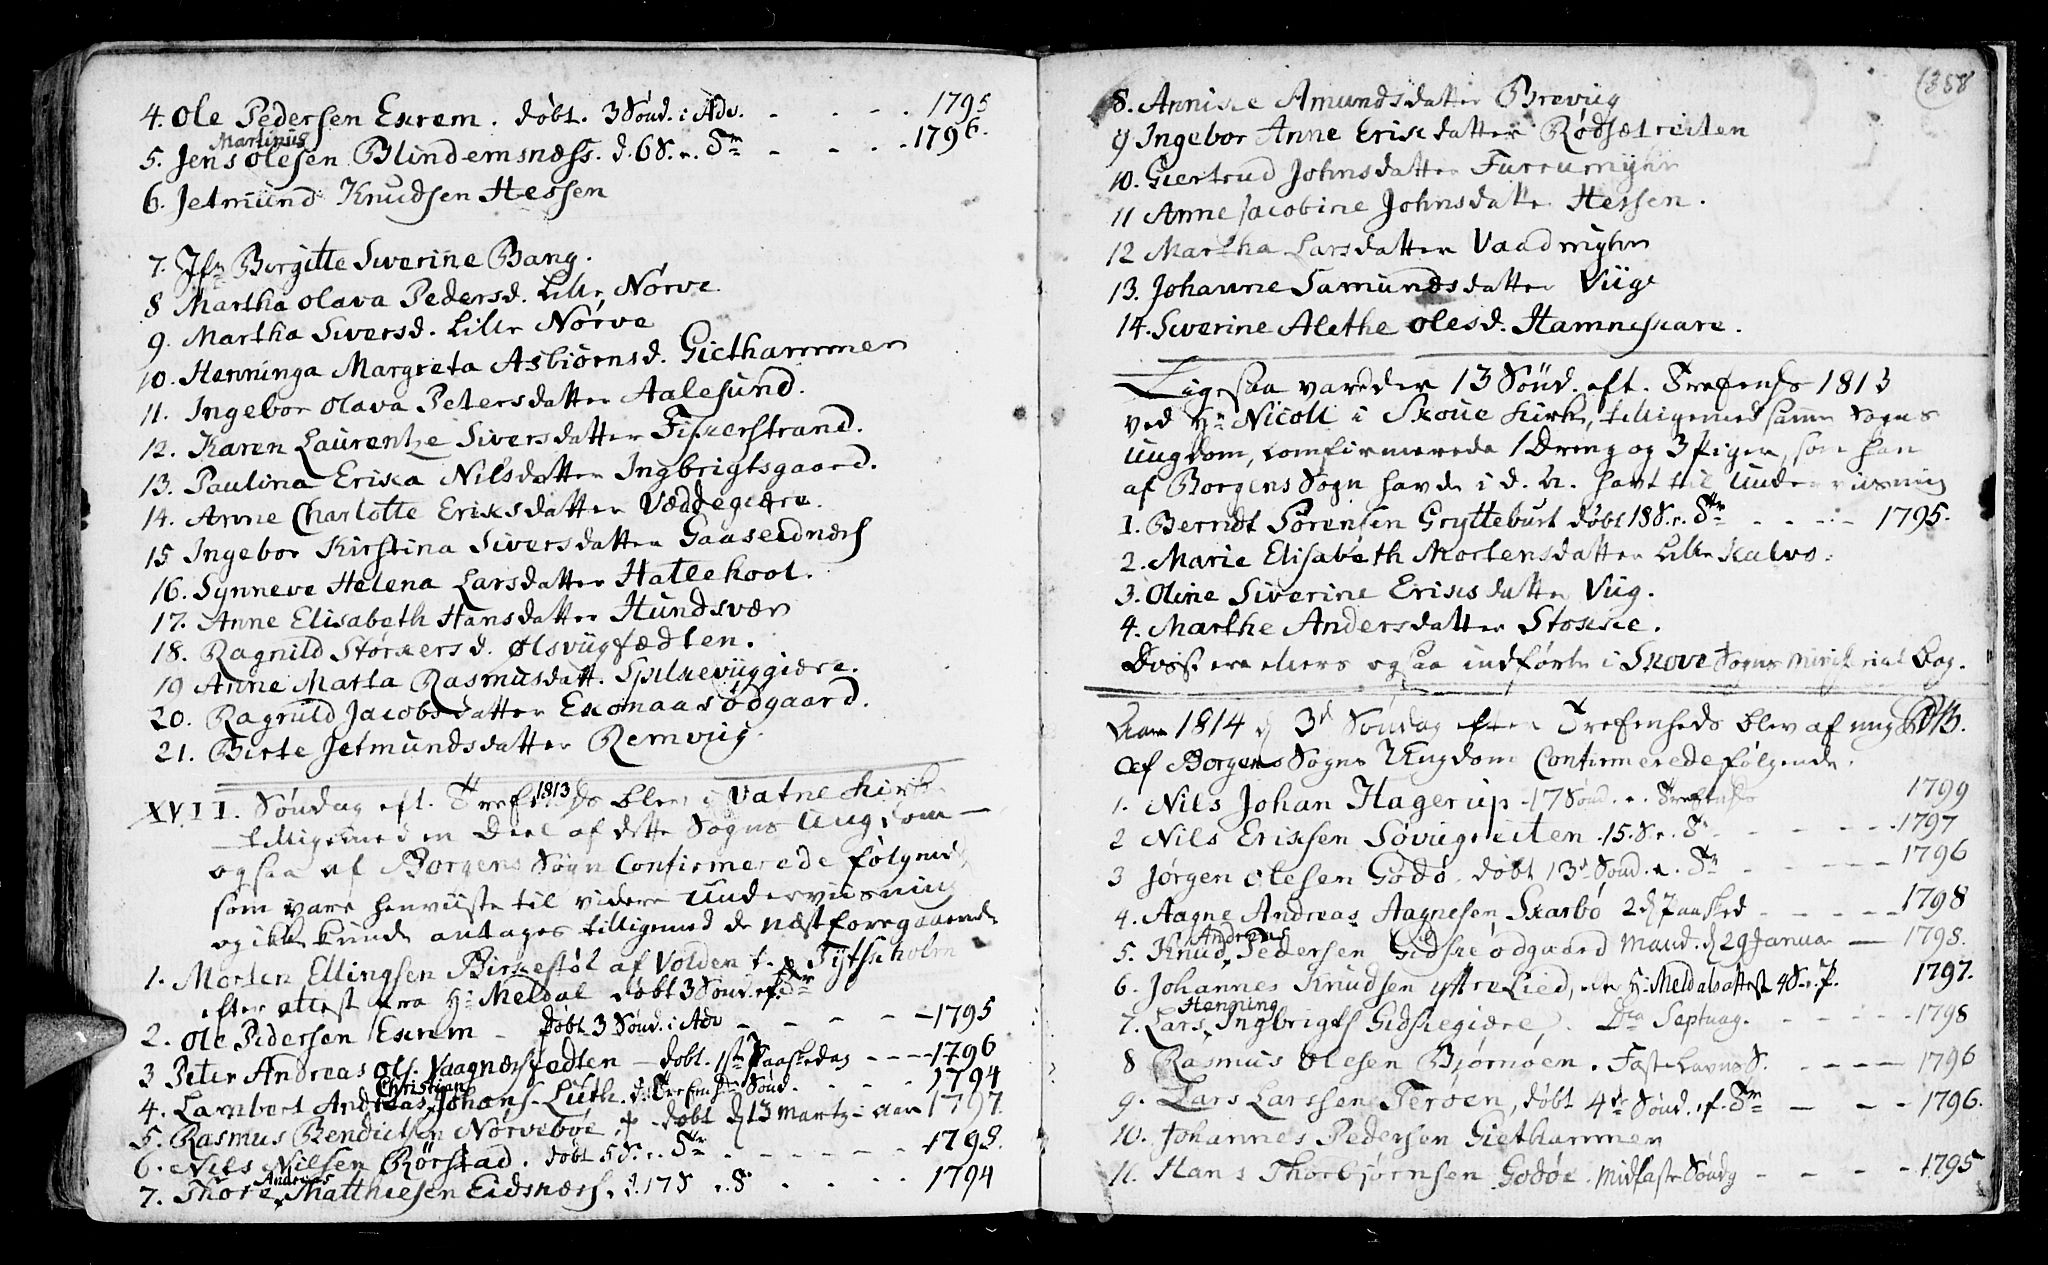 4. Ole Pedersen Exrem. døbt. 3 Sønd. i Adv. - - - - 1795
Martinus
5. Jens Olesen Blindemsnæss. d. 6 S. e. Tr - - - 1796.
6. Jetmund Knudsen Hessen
7. Jfr Birgitte Siverine Bang.
8 Martha Olava Pedersd. Lille Nörve
9. Martha Siversd. Lille Nörve
10. Henninga Margreta Asbiörnsd. Giethammer
11. Ingebor Olava Petersdatter Aalesund.
12. Karen Laurentze Siversdatter Fiskerstrand.
13. Paulina Ericka Nilsdatter Ingbrigtsgaard.
14. Anne Charlotte Eriksdatter Væddegiære.
15 Ingebor Kirstina Siversdatter Gaaseidnæs
16. Synneve Helena Larsdatter Hatlehool.
17. Anne Elisabeth Hansdatter Hundsvær
18. Ragnild Störkersd. Ølsviigfædten.
19 Anne Marta Rasmusdatt. Spilkeviiggiære.
20. Ragnild Jacobsdatter Exonaasödgaard.
21. Birte Jetmundsdatter Remviig.
1813
XVII. Søndag eft. Trefhds blev i Vatne Kirke
tilligemed en Deel af dette Sogns Ungdom
ogsaa af Borgens Sogn Confirmerede følgende
som vare henviiste til videre Underviisning
og ikke kunde antages tilligemed de næstforegaaende
1. Morten Ellingsen Birkestöl af Volden f. Tytsholm
efter attest fra Hr Meldal døbt 3 Sønd. ef. Tr
2. Ole Pedersen Exrem - døbt 3 Sønd. i Adv - - - - 1795
3 Peter Andreas Ols. Vaagnæsfedten - døbt. 1ste Paaskedag - - - 1796
Christian
4. Lambert Andreas Johans. Lüth. d. Trefh. Sønd. - - - 1794
5. Rasmus Bendictsen Nörvebøe, døbt d 13 Martz - 1797.
6. Nils Nilsen Rörstad. døbt 5 S. e. Tr - - - - - 1795.
Andreas
7. Thore Matthiesen Eidsnæs. d. 17 S e. Tr - - - - 1794
1388
8. Annicke Amundsdatter Breviig
9 Ingebor Anne Erikdatter Rødsætreiten
10. Giertrud Johnsdatter Furrumyhr
11 Anne Jacobine Johnsdatter Hessen.
12 Martha Larsdatter Vaadmyhr
13. Johanne Samundsdatter Viige
14. Siverine Alethe Olesd. Hamneskare.
Ligesaa var der 13 Sønd. eft. Trefhds 1813
ved Hr Nicoll i Skoue Kirke, tilligemed samme Sogns
Ungdom, Confirmerede 1 Dreng og 3 Piger, som han
af Borgens Sogn havde i d. A. havt til Underviisning
1. Berndt Sörensen Grytteburt døbt 18 S. e. Tr - - - - 1795.
2. Marie Elisabeth Mortensdatter Lille Kalvø.
3. Oline Siverine Eriksdatter Viig.
4. Marthe Andersdatter Stokke.
Disse ere ellers ogsaa indførte i Skove Sogns Ministerial Bog.
Anno 1814 d 3d Søndag efter Trefhds blev af mig
af Borgens Sogns Ungdom Confirmerede følgende.
1. Nils Johan Hagerup - 17 Sønd. e. Trefh 1799
2 Nils Eriksen Søviigreiten. 15. S. e. Tr - - - - 1797
3 Jørgen Olesen Godø. døbt 13d Sønd. e. Tr - - - - 1796
4. Aagne Andreas Aagnesen Skarbö 2 d Paasked - - - - 1798
Andreas
5. Knud Pedersen Gidskeødgaard Maud. d 29 Janua - 1798.
6. Johannes Knudsen Yttrelied, Hr Meldals attest 4 S. e. P. 1797.
Henning
7. Lars Ingbrigts Gidskegiære. Dca Septuag. - - - - 1798
8 Rasmus Olesen Bjørnøen. Fastelavns S. - - - - 1796
9. Lars Larssen Terøen, døbt 4de Sønd. ef. Tr - - - 1796.
10. Johannes Pedersen Giethammer
11. Hans Thorbjørnsen Godøe. Midfaste Søndg - - - 1795